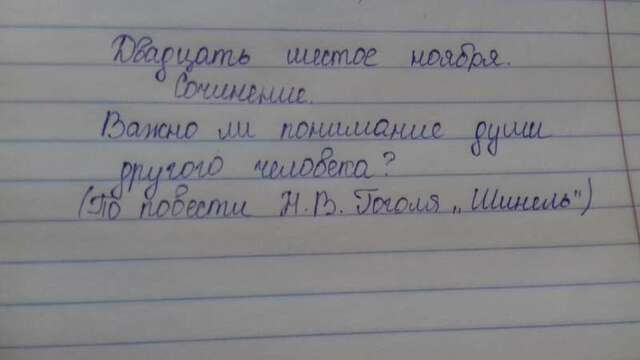 Двадцать шестое ноября.
Сочинение.
Важно ли понимание души
другого человека?
(По повести Н.В. Гоголя „Шинель")